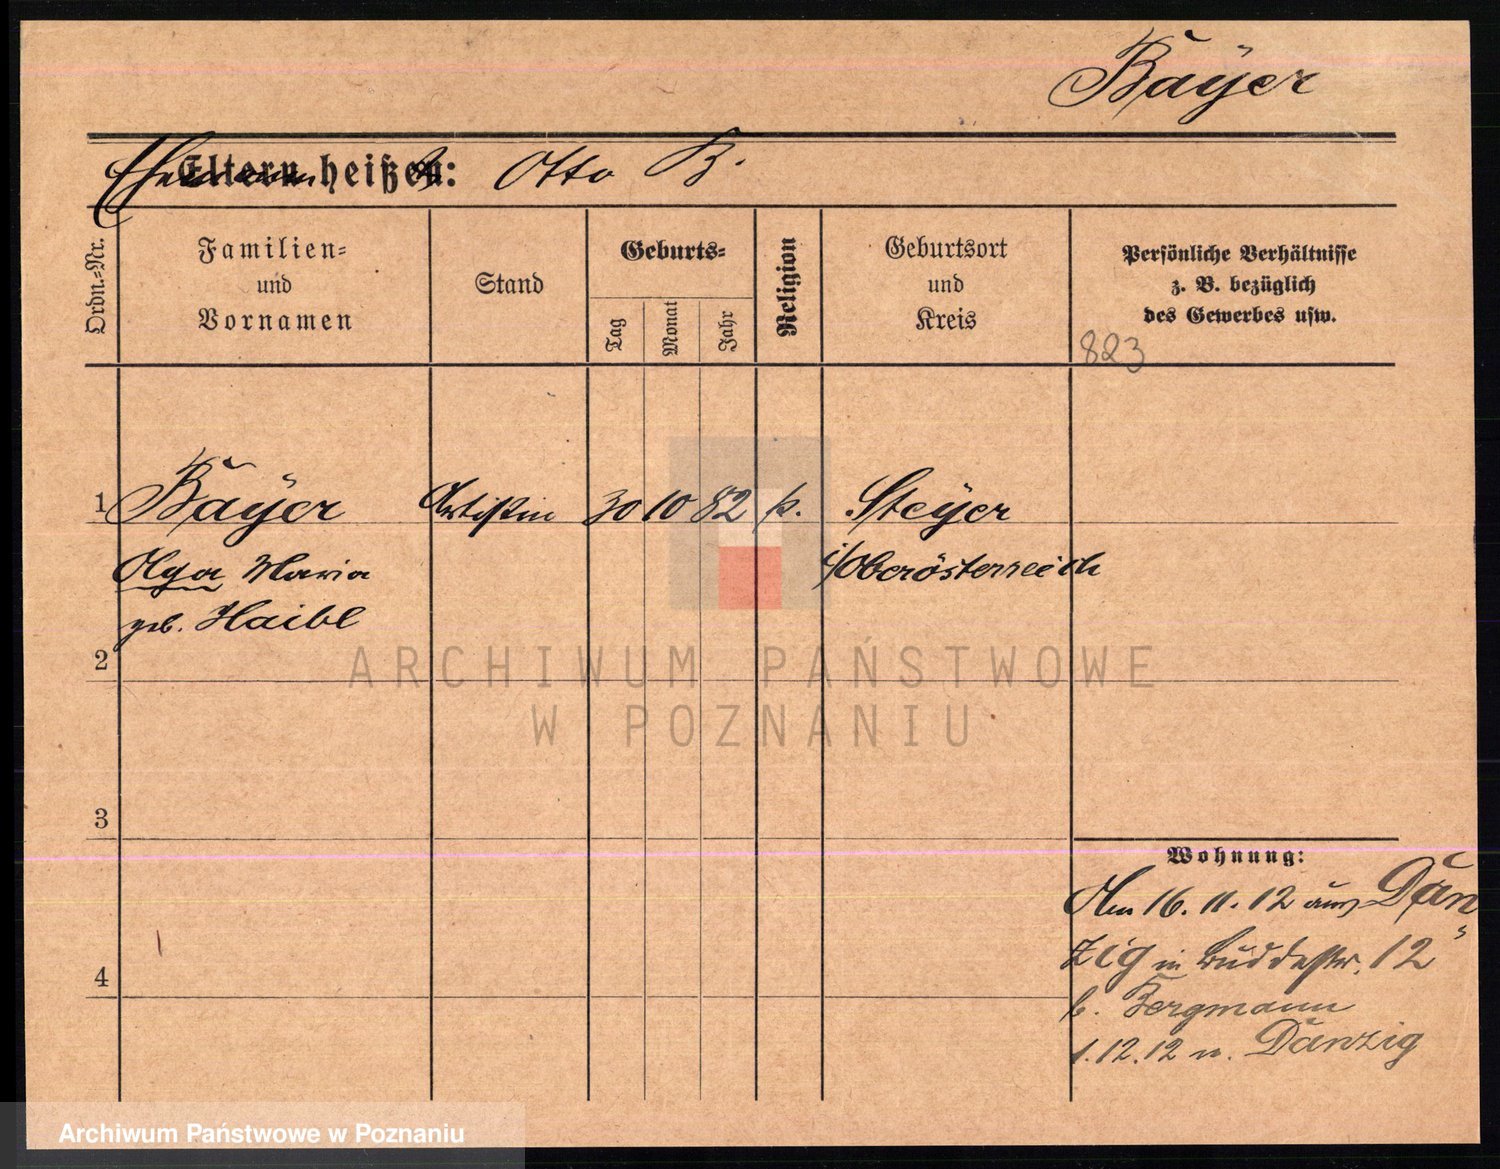 Bayer
Ehemann Eltern heißen: Otto B.
Ordn.-Nr.
Familien-
und
Vornamen
Stand
Geburts-
Tag
Monat
Jahr
Religion
Geburtsort
und
Kreis
Persönliche Verhältnisse
z. B. bezüglich
des Gewerbes usw.
823
1 Bayer Artistin 30 10 82 k. Steyer
Olga Maria i/Oberösterreich
geb. Haibl
2
3
4
Wohnung:
Am 16.11.12 aus Dan
zig in Buddestr. 12
b. Bergmann
1.12.12 n. Danzig
ARCHIWUM PAŃSTWOWE
W POZNANIU
Archiwum Państwowe w Poznaniu